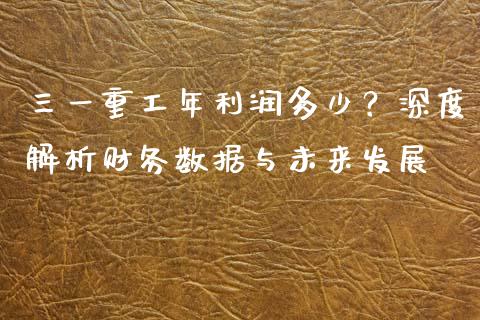 三一重工年利润多少？深度
解析财务数据与未来发展